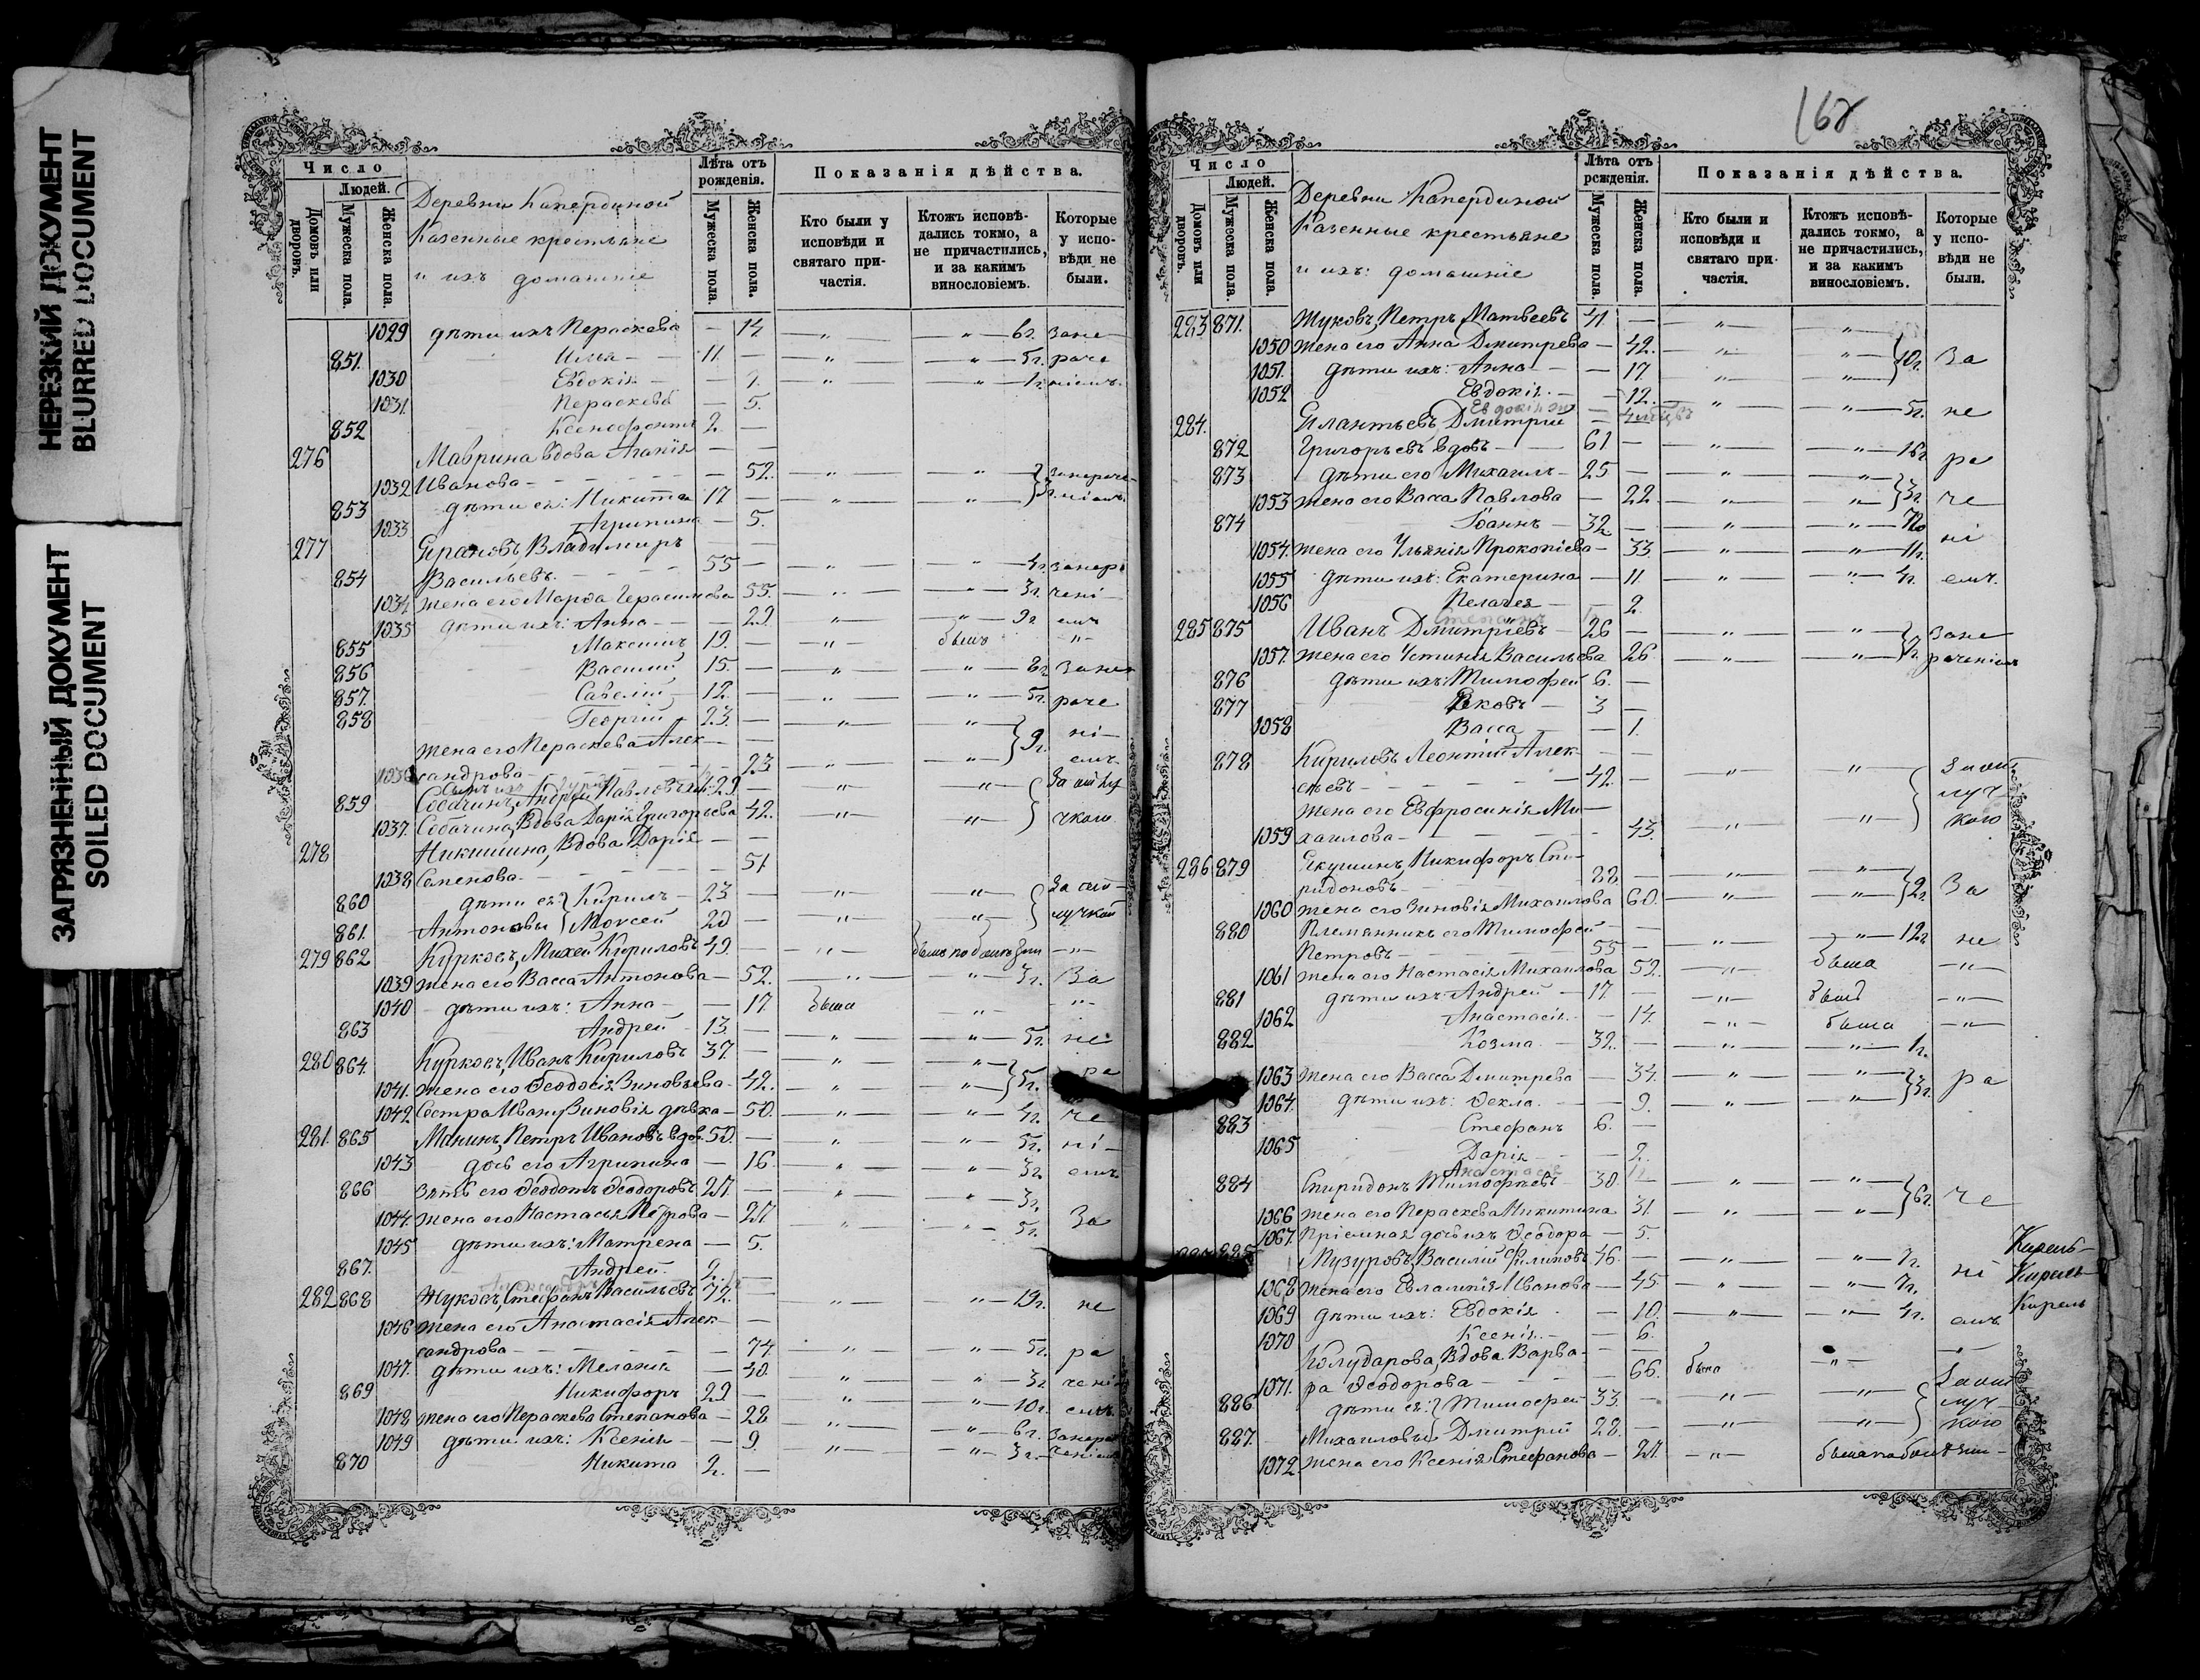 НЕРЕЗКИЙ ДОКУМЕНТ
BLURRED DOCUMENT
ЗАГРЯЗНЕННЫЙ ДОКУМЕНТ
SOILED DOCUMENT
Число
Людей.
Домовъ или дворовъ.
Мужеска пола.
Женска пола.
Деревни Капердиной
Казенные крестьяне
и ихъ домашніе
Лѣта отъ рожденія.
Мужеска пола.
Женска пола.
Показанія дѣйства.
Кто были у исповѣди и святаго причастія.
Ктожъ исповѣдались токмо, а не причастились, и за какимъ винословіемъ.
Которые у исповѣди не были.
1029 дѣти ихъ Параскева — 14 — „ — „ — 6г. Зане
851. Илья — 11. — „ — „ — 5г. раче
1030 Евдокія — „ — „ — 1г. ніемъ.
1031. Параскева — 5.
852 Ксенофонтъ 2. —
276 Маврина вдова Агапія —
1032 Иванова — 52. — „ — „
853 дѣти ея: Никита 17 — „ — „
1033 Агрипина — 5.
277 Владимиръ
854 Васильевъ. — 55 — „ — „ — 4г.
1034 жена его Марѳа Герасимова 55. — „ — „ — 3г. чені
1035 дѣти ихъ: Анна — 29. — „ — „ — 9г. емъ
855 Максимъ 19. — „ — былъ „
856 Василий 15. — „ — „
857. Савелій 12. — „ — „ — 5г. раче
858 Георгій 23. — „ — „
жена его Параскева Алек- 9г. ні
1036 сандрова — 23 — „ — „ емъ
859 Собачинъ, Андрей Павловъ 29. — „ — „
1037. Собачина, Вдова Дарія Григорьева 42. — „ — „
278 Никишина, Вдова Дарія —
1038 Семенова — 51
860 дѣти ея: Кирилъ — 23 — „ — „ За от
861. Антоновы Моисей 20 — „ — „ лучкой
279 862 Курковъ, Михей Кириловъ 49. — „ — былъ по болѣзни — „
1039 жена его Васса Антонова — 52. — „ — „ — 3г. За
1040 дѣти ихъ: Анна — 17. была — „ — „
863 Андрей 13. — „ — „ — 5г. не
280 864. Курковъ, Иванъ Кириловъ 37. — „ — „
1041. жена его Ѳеодосія Зиновьева — 42. — „ — „ 5г. ра
1042 Сестра Ивана Зиновія дѣвка — 50. — „ — „ — 4г. че
281. 865 Манинъ, Петръ Ивановъ вдов. 50. — „ — „ — 5г. ні
1043 дочь его Агрипина — 16. — „ — „ — 3г. емъ
866 Зять его Ѳеодотъ Ѳеодоровъ 27. — „ — „ — 3г.
1044. жена его Настасья Петрова — 27 — „ — „ — 5г. За
1045 дѣти ихъ: Матрена — 5.
867. Андрей. 2. —
282 868 Жуковъ, Стефанъ Васильевъ 72. — „ — „ — 19г. не
1046 жена его Анастасія Алек-
сандрова — 74. — „ — „ — 5г. ра
1047. дѣти ихъ: Меланія — 40. — „ — „ — 3г.
869 Никифоръ 29 — „ — „ — 10г. емъ.
1048 жена его Параскева Степанова — 28 — „ — „ — 6г.
1049 дѣти ихъ: Ксенія — 9. — „ — „ — 3г.
870 Никита 2. —
168
Число
Людей.
Домовъ или дворовъ.
Мужеска пола.
Женска пола.
Деревни Капердиной
Казенные крестьяне
и ихъ: домашніе
Лѣта отъ рожденія.
Мужеска пола.
Женска пола.
Показанія дѣйства.
Кто были и исповѣди и святаго причастія.
Ктожъ исповѣдались токмо, а не причастились, и за какимъ винословіемъ.
Которые у исповѣди не были.
283 871. Жуковъ, Петръ Матвеевъ 41. — „ — „
1050 жена его Анна Дмитрева — 42. — „ — „ 10г. За
1051. дѣти ихъ: Анна — 17 — „ — „
1052 Евдокія. — 12. — „ — „ — 5г. не
284. Дмитрій
872 Григорьевъ вдовъ — 61 — „ — „ — 16г.
873 дѣти его Михаилъ — 25 — „ — „ ра
1053 жена его Васса Павлова — 22. — „ — „ 3г. че
874 Іоаннъ — 32 — „ — „
1054. жена его Ульянія Прокопіева — 33. — „ — „ — 11г. ні
1055 дѣти ихъ: Екатерина — 11. — „ — „ — 4г. емъ.
1056 Пелагея — 2.
285 875 Иванъ Дмитріевъ — 26 — „ — „ Зане
1057. жена его Устинія Васильева 26 — „ — „ раченіемъ
876 дѣти ихъ: Тимофей 6. —
877 Яковъ — 3 —
1058 Васса — 1.
878 Кириловъ Леонтій Алек-
сѣевъ — 42. — „ — „ За от
жена его Евфросинія Ми- луч
1059 хаилова — 43. — „ — „ кою
286 879 Якушинъ, Никифоръ Спи-
ридоновъ — „ — „
1060 жена его Зиновія Михаилова 60. — „ — „ 2г. За
880 Племянникъ его Тимофей —
Петровъ — 55 — „ — „ — 12г. не
1061 жена его Настасія Михаилова 52. — „ — была — „
881 дѣти ихъ: Андрей — 17. — „ — былъ — „
1062 Анастасія. — 14. — „ — была — „
882 Козма — 32. — „ — „ — 1г.
1063 жена его Васса Дмитрева — 34. — „ — „ ра
1064. дѣти ихъ: Ѳекла. — 9. — „ — „ 3г.
883 Стефанъ 6. —
1065 Дарія — 2.
884 Спиридонъ Тимофеевъ — 30 — „ — „
1066 жена его Параскева Никитина 31. — „ — „ 6г. че
1067. Пріемная дочь ихъ Ѳеодора — 5.
885 Музуровъ, Василій Филиповъ 46. — „ — „
1068 жена его Евлампія Иванова — 45 — „ — „ ні
1069 дѣти ихъ: Евдокія — 10. — „ — „ — 4г. емъ.
1070 Ксенія. — 6.
Колударова, Вдова Варва-
1071. ра Ѳеодорова — 66. была — „
886 дѣти ея: Тимофей 33. — „ — „ луч
887. Михаиловы Дмитрій 28. — „ — „ кою
1072 жена его Ксенія Стефанова — 27. — „ — была по болѣзни —